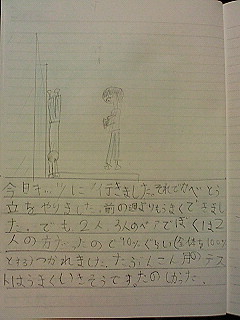 今日キッツに行きました。それでかべとう
立をやりました。前の週よりもうまくできまし
た。でも、2人、3人のペアでぼくは2
人の方だったので10%ぐらい(全体を100%
とする)つかれました。たぶんこん月のテス
トはうまくいきそうです。たのしかった。